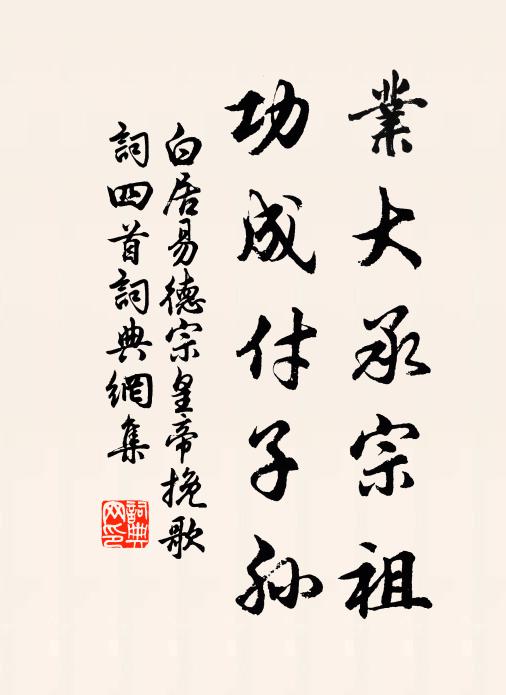 業大承宗祖
功成付子孫
白居易德宗皇帝挽歌
詞四首詞典網集
詞典網印